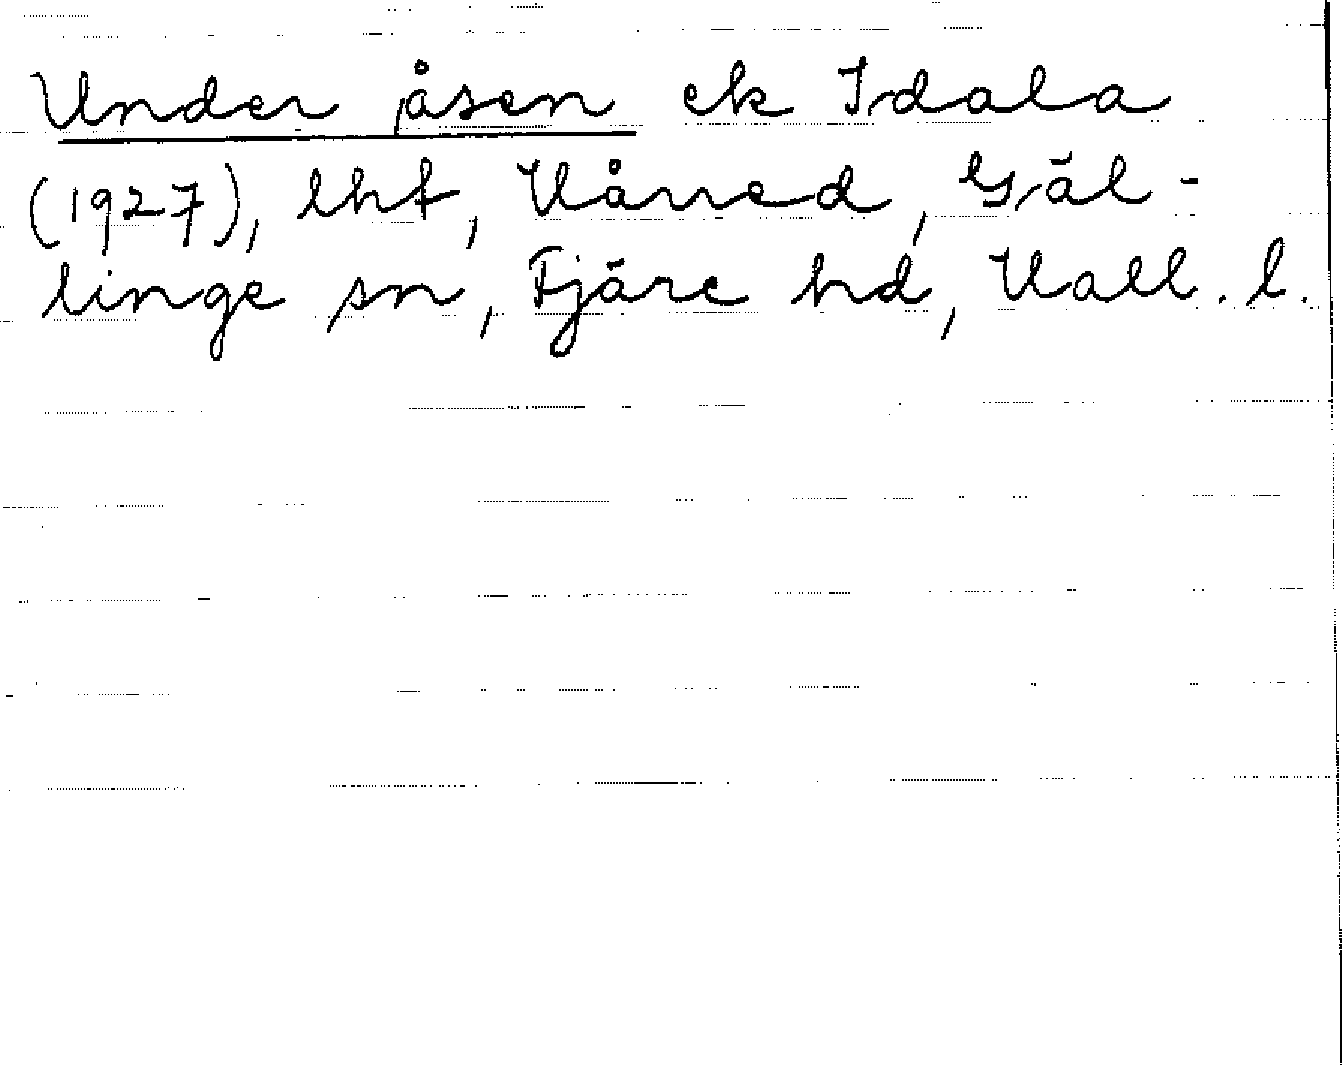 Under åsen ek Idala
(1927), lht, Hårred, Gäl-
linge sn, Fjäre hd, Hall. l.